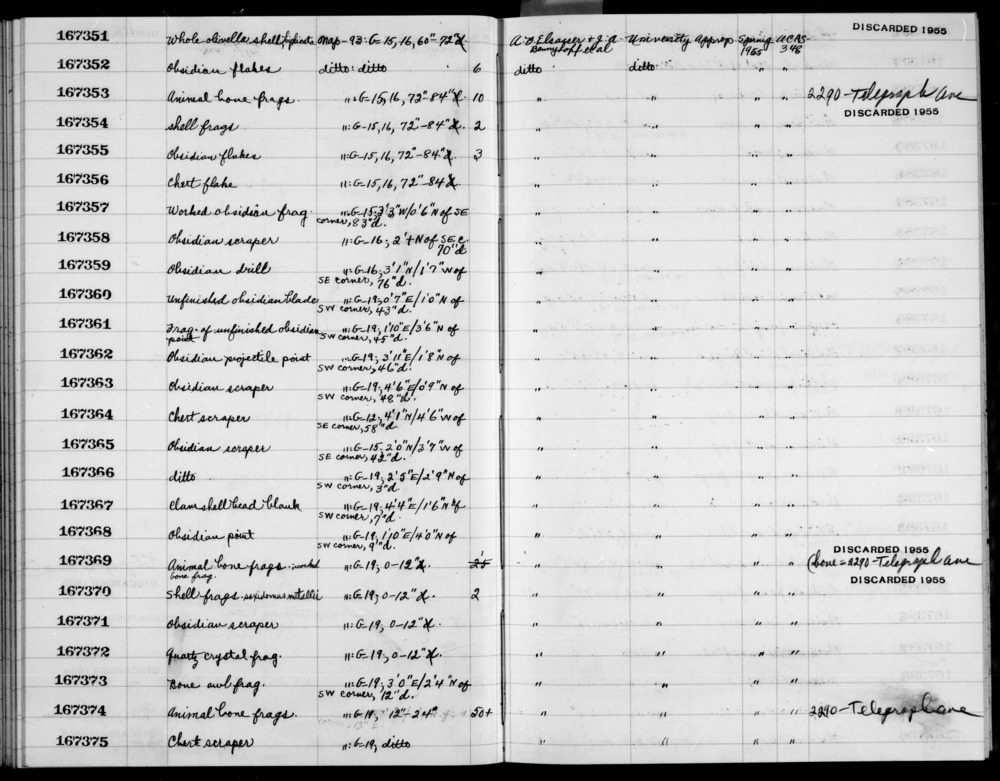 167351 Whole olivella shell, biplicata Nap-93: G-15, 16, 60"-72"d. A.B. Elsasser + J.A. Bennyhoff et al University Approp Spring 1955 UCAS 348 DISCARDED 1955
167352 Obsidian flakes ditto: ditto 6 ditto ditto " "
167353 Animal bone frags. ": G-15, 16, 72"-84"d. 10 " " " " 2290-Telegraph Ave
167354 Shell frags ": G-15, 16, 72"-84"d. 2 " " " " DISCARDED 1955
167355 Obsidian flakes ": G-15, 16, 72"-84"d. 3 " " " "
167356 Chert flake ": G-15, 16, 72"-84"d. " " " "
167357 Worked obsidian frag. ": G-15; 3'3"W/0'6"N of SE
corner, 83"d. " " " "
167358 Obsidian scraper ": G-16; 2'+N of SE c.
70"d " " " "
167359 Obsidian drill ": G-16; 3'1"N/1'7"W of
SE corner, 76"d. " " " "
167360 Unfinished obsidian blade ": G-19; 0'7"E/1'0"N of
SW corner, 43"d. " " " "
167361 Frag. of unfinished obsidian
point ": G-19; 1'10"E/3'6"N of
SW corner, 45"d. " " " "
167362 Obsidian projectile point ": G-19; 3'11"E/1'8"N of
SW corner, 46"d. " " " "
167363 Obsidian scraper ": G-19; 4'6"E/0'9"N of
SW corner, 48"d. " " " "
167364 Chert scraper ": G-12; 4'1"N/4'6"W of
SE corner, 58"d " " " "
167365 Obsidian scraper ": G-15; 2'0"N/3'7"W of
SE corner, 42"d. " " " "
167366 ditto ": G-19; 2'5"E/2'9"N of
SW corner, 3"d " " " "
167367 Clam shell bead blank ": G-19; 4'4"E/1'6"N of
SW corner, 7"d. " " " "
167368 Obsidian point ": G-19; 1'10"E/4'0"N of
SW corner, 9"d. " " " "
167369 Animal bone frags.; worked
bone frag. ": G-19; 0-12"d. 1 25 " " " " DISCARDED 1955
(bone = 2290-Telegraph Ave
167370 Shell frags. saxidomus nuttallii ": G-19; 0-12"d. 2 " " " " DISCARDED 1955
167371 Obsidian scraper ": G-19; 0-12"d. " " " "
167372 Quartz crystal frag. ": G-19; 0-12"d. " " " "
167373 Bone awl frag. ": G-19; 3'0"E/2'4"N of
SW corner, 12"d. " " " "
167374 Animal bone frags. ": G-19; 12"-24" 50+ " " " " 2290-Telegraph ave
167375 Chert scraper ": G-19; ditto " " " "